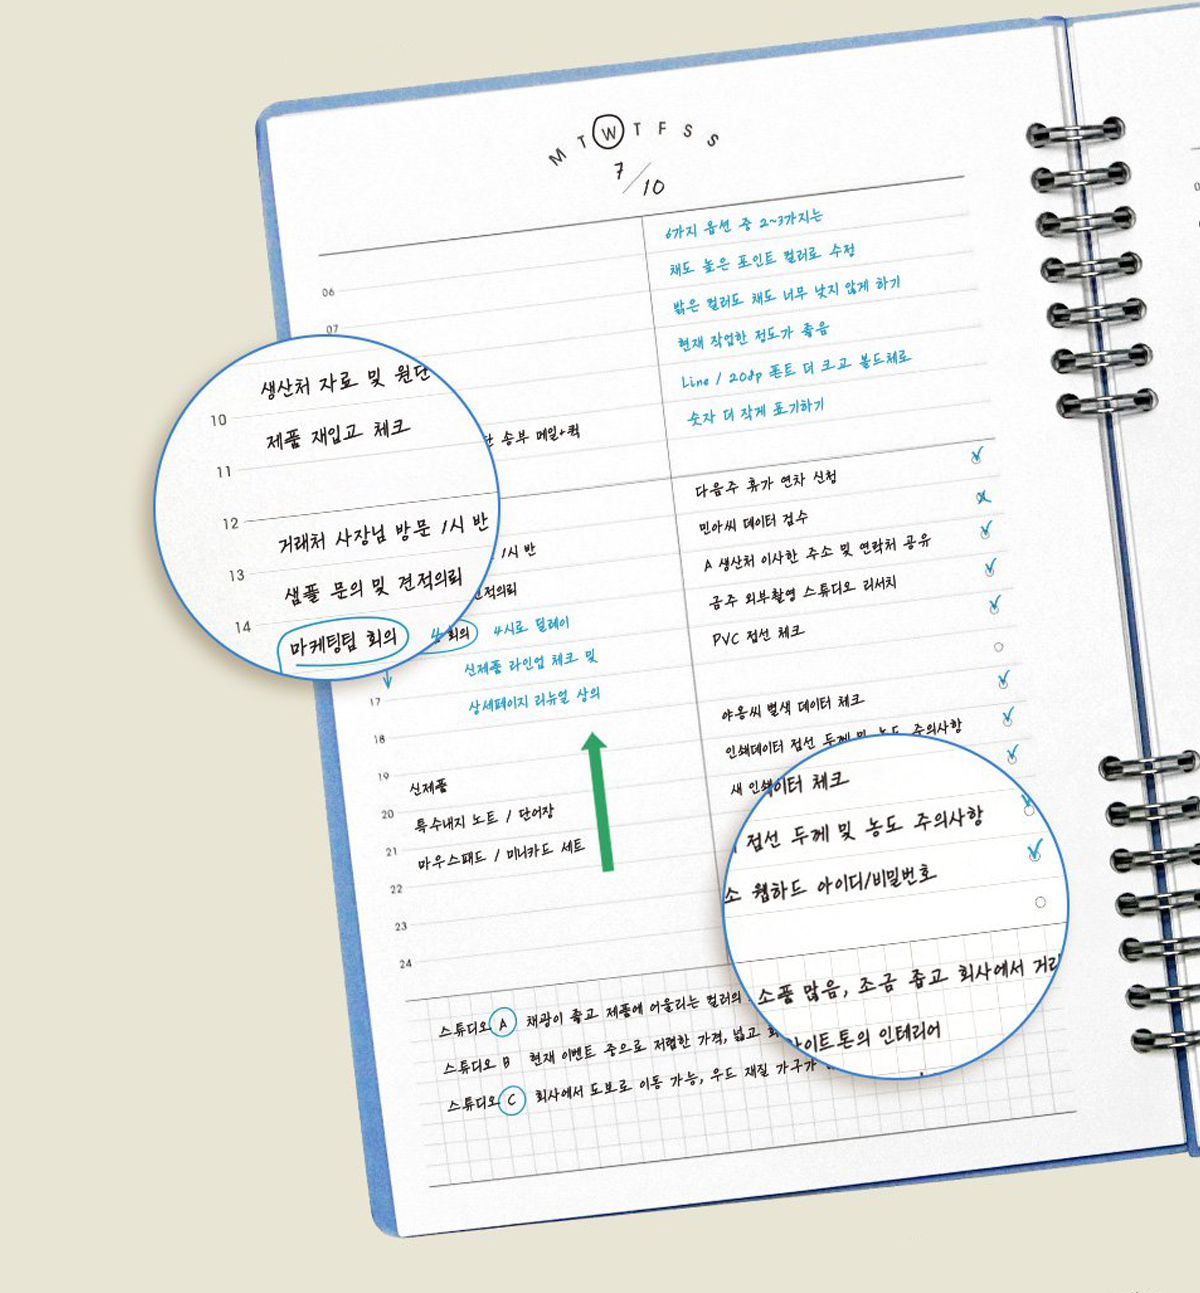 M T W T F S S
7/10
06
07
생산처 자료 및 원단
10
제품 재입고 체크
11
12
거래처 사장님 방문 1시 반
13
샘플 문의 및 견적의뢰
14
마케팅팀 회의
단 송부 메일+퀵
1시 반
견적의뢰
회의 4시로 딜레이
신제품 라인업 체크 및
17
상세페이지 리뉴얼 상의
18
19
신제품
20
특수내지 노트 / 단어장
21
마우스패드 / 미니카드 세트
22
23
24
6가지 옵션 중 2~3가지는
채도 높은 포인트 컬러로 수정
밝은 컬러도 채도 너무 낮지 않게 하기
현재 작업한 정도가 좋음
Line / 208p 폰트 더 크고 볼드체로
숫자 더 작게 표기하기
다음주 휴가 연차 신청
민아씨 데이터 검수
A 생산처 이사한 주소 및 연락처 공유
금주 외부촬영 스튜디오 리서치
PVC 접선 체크
야옹씨 별색 데이터 체크
인쇄데이터 접선 두께 및 농도 주의사항
새 인쇄
이터 체크
접선 두께 및 농도 주의사항
소 웹하드 아이디/비밀번호
소품 많음, 조금 좁고 회사에서 거리
화이트톤의 인테리어
스튜디오 A 채광이 좋고 제품에 어울리는 컬러의
스튜디오 B 현재 이벤트 중으로 저렴한 가격, 넓고
스튜디오 C 회사에서 도보로 이동 가능, 우드 재질 가구가